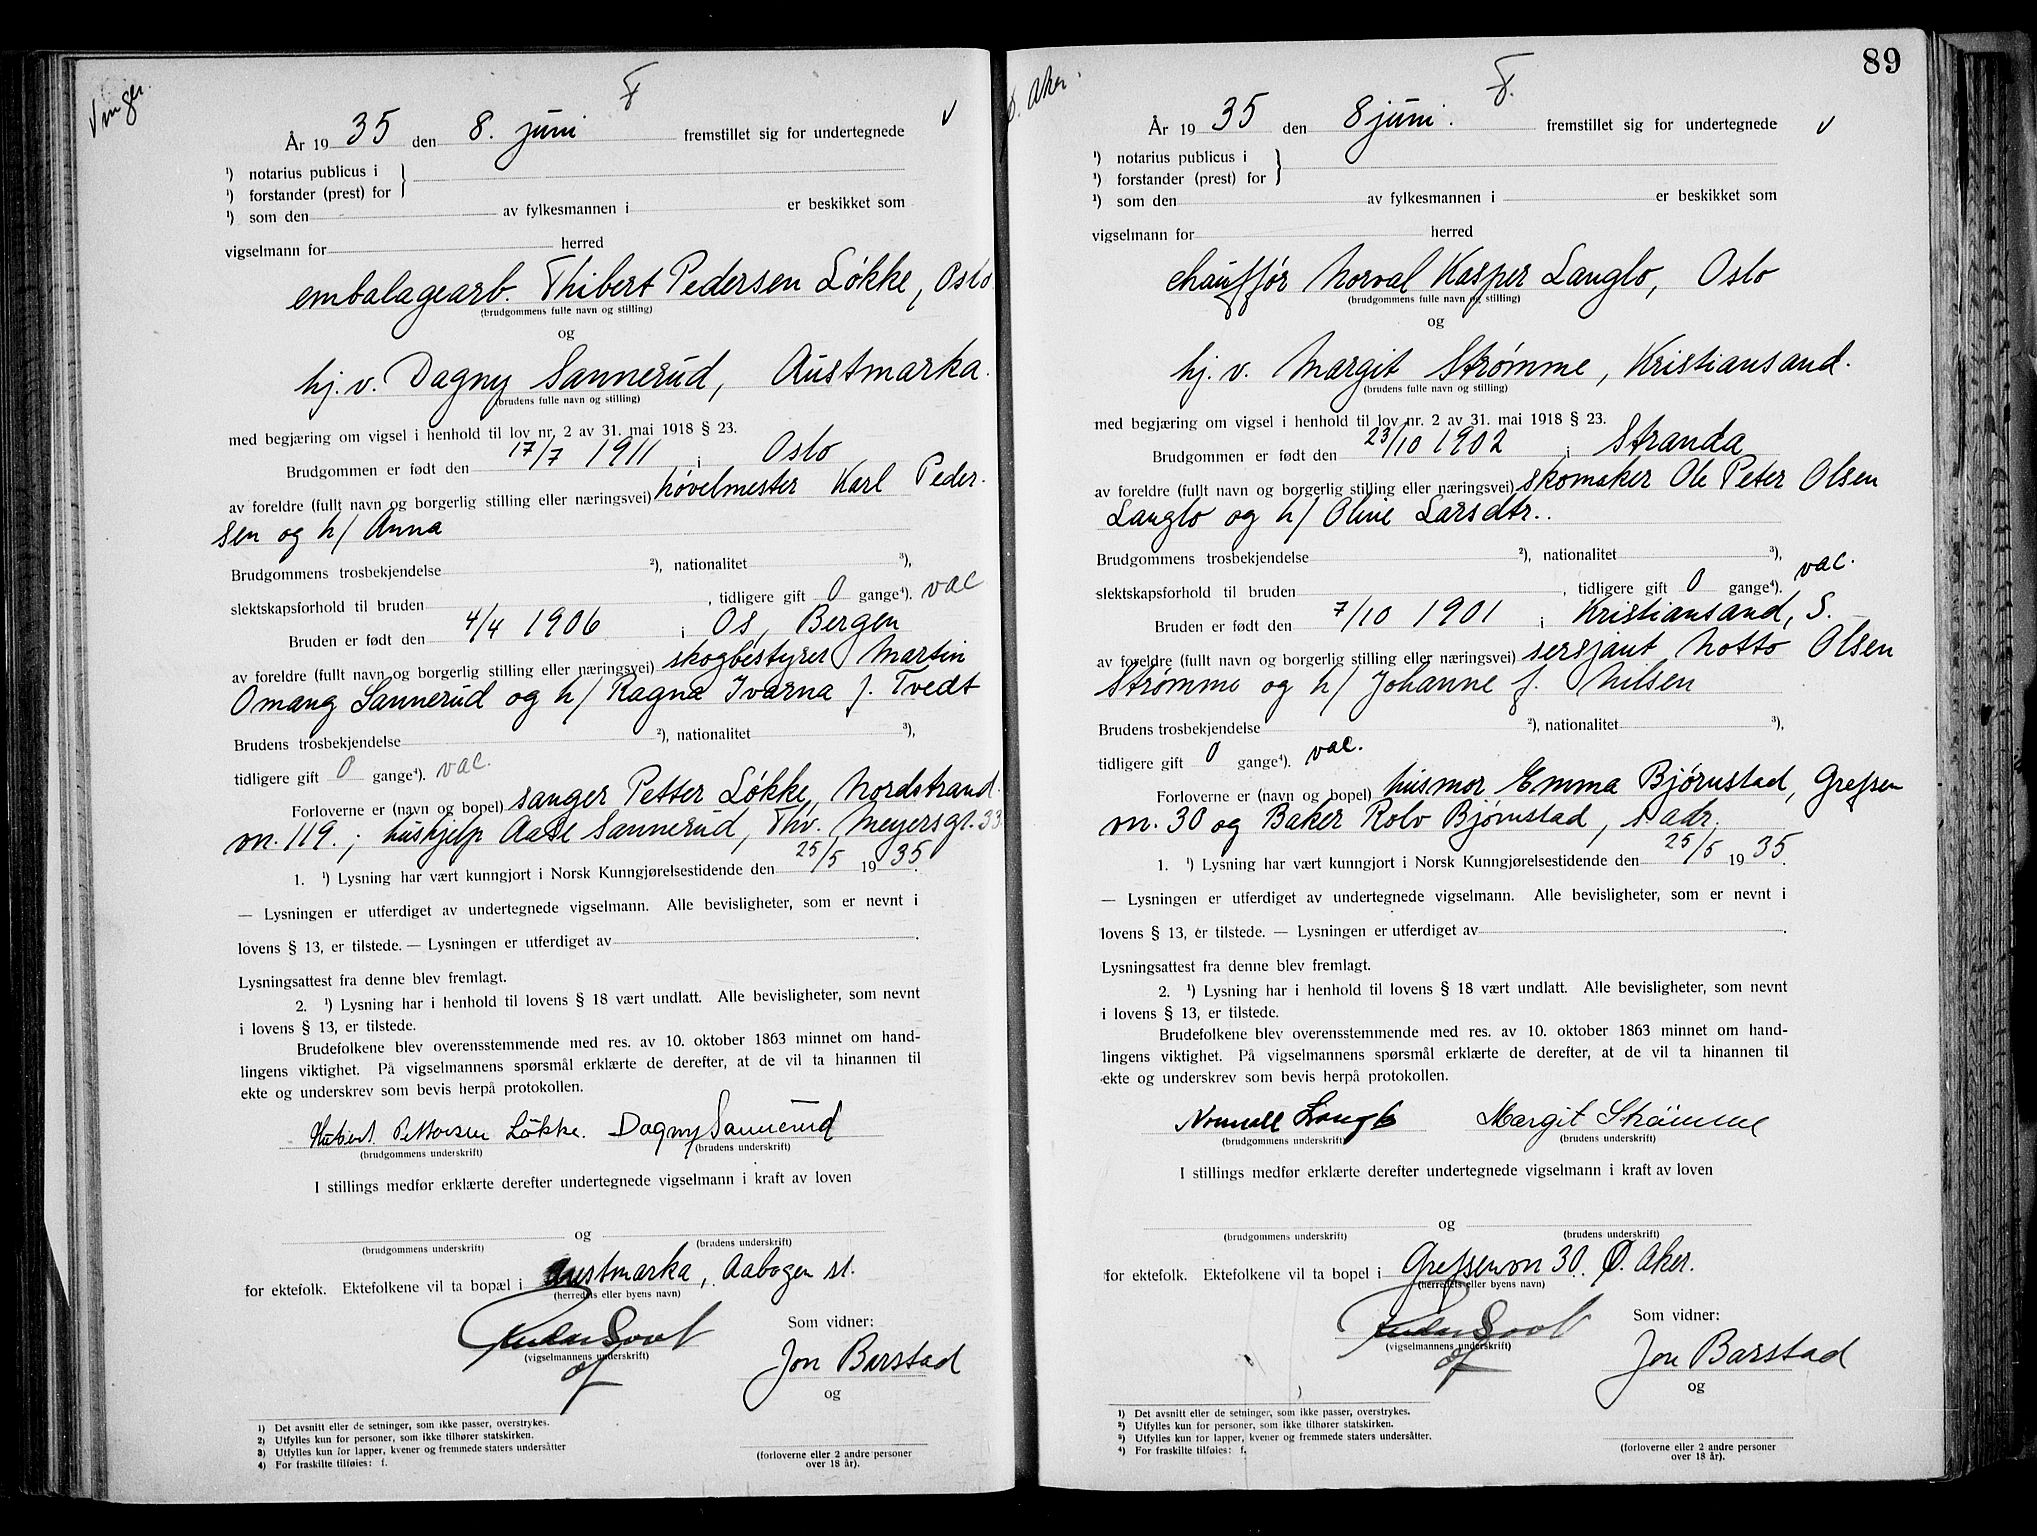 Vinger.
F
År 1935 den 8. juni fremstillet sig for undertegnede
¹) notarius publicus i
¹) forstander (prest) for
¹) som den av fylkesmannen i er beskikket som
vigselmann for herred
embalagearb. Thibert Pedersen Løkke, Oslo
(brudgommens fulle navn og stilling)
og
hj. v. Dagny Sannerud, Austmarka.
(brudens fulle navn og stilling)
med begjæring om vigsel i henhold til lov nr. 2 av 31. mai 1918 § 23.
Brudgommen er født den 17/7 1911 i Oslo
av foreldre (fullt navn og borgerlig stilling eller næringsvei) høvelmester Karl Peder-
sen og h/ Anna
Brudgommens trosbekjendelse ²), nationalitet ³),
slektskapsforhold til bruden , tidligere gift 0 gange⁴). vac
Bruden er født den 4/4 1906 i Os, Bergen
av foreldre (fullt navn og borgerlig stilling eller næringsvei) skogbestyrer Martin
Omang Sannerud og h/ Ragna Ivarna f. Tvedt
Brudens trosbekjendelse ²), nationalitet ³),
tidligere gift 0 gange⁴). vac.
Forloverne er (navn og bopel) sanger Petter Løkke, Nordstrand-
vn. 119.; hushjelp Aase Sannerud, Thv. Meyersgt. 33
1. ¹) Lysning har vært kunngjort i Norsk Kunngjørelsestidende den 25/5 1935.
— Lysningen er utferdiget av undertegnede vigselmann. Alle bevisligheter, som er nevnt i
lovens § 13, er tilstede. — Lysningen er utferdiget av .
Lysningsattest fra denne blev fremlagt.
2. ¹) Lysning har i henhold til lovens § 18 vært undlatt. Alle bevisligheter, som nevnt
i lovens § 13, er tilstede.
Brudefolkene blev overensstemmende med res. av 10. oktober 1863 minnet om hand-
lingens viktighet. På vigselmannens spørsmål erklærte de derefter, at de vil ta hinannen til
ekte og underskrev som bevis herpå protokollen.
Pettersen Løkke. Dagny Sannerud
(brudgommens underskrift) (brudens underskrift)
I stillings medfør erklærte derefter undertegnede vigselmann i kraft av loven
og
(brudgommens underskrift) (brudens underskrift)
for ektefolk. Ektefolkene vil ta bopæl i Austmarka, Aabogen st.
(herredets eller byens navn)
Som vidner:
(vigselmannens underskrift)
Jon Barstad
og
1) Det avsnitt eller de setninger, som ikke passer, overstrykes.
2) Utfylles kun for personer, som ikke tilhører statskirken.
3) Utfylles kun for lapper, kvener og fremmede staters undersåtter
4) For fraskilte tilføies: f.
(forloverne eller 2 andre personer
over 18 år).
89
Ø. Aker.
F.
År 1935 den 8 juni. fremstillet sig for undertegnede
¹) notarius publicus i
¹) forstander (prest) for
¹) som den av fylkesmannen i er beskikket som
vigselmann for herred
chauffør Norval Kasper Langlo, Oslo
(brudgommens fulle navn og stilling)
og
hj. v. Margit Strømme, Kristiansand.
(brudens fulle navn og stilling)
med begjæring om vigsel i henhold til lov nr. 2 av 31. mai 1918 § 23.
Brudgommen er født den 23/10 1902 i Stranda
av foreldre (fullt navn og borgerlig stilling eller næringsvei) skomaker Ole Peter Olsen
Langlo og h/ Oline Larsdtr..
Brudgommens trosbekjendelse ²), nationalitet ³),
slektskapsforhold til bruden , tidligere gift 0 gange⁴). vac.
Bruden er født den 7/10 1901 i Kristiansand, S.
av foreldre (fullt navn og borgerlig stilling eller næringsvei) sersjant Notto Olsen
Strømme og h/ Johanne f. Nilsen
Brudens trosbekjendelse ²), nationalitet ³),
tidligere gift 0 gange⁴). vac.
Forloverne er (navn og bopel) husmor Emma Bjørnstad, Grefsen
vn. 30 og Baker Rolv Bjørnstad, s adr.
1. ¹) Lysning har vært kunngjort i Norsk Kunngjørelsestidende den 25/5 1935.
— Lysningen er utferdiget av undertegnede vigselmann. Alle bevisligheter, som er nevnt i
lovens § 13, er tilstede. — Lysningen er utferdiget av .
Lysningsattest fra denne blev fremlagt.
2. ¹) Lysning har i henhold til lovens § 18 vært undlatt. Alle bevisligheter, som nevnt
i lovens § 13, er tilstede.
Brudefolkene blev overensstemmende med res. av 10. oktober 1863 minnet om hand-
lingens viktighet. På vigselmannens spørsmål erklærte de derefter, at de vil ta hinannen til
ekte og underskrev som bevis herpå protokollen.
Langlo Margit Strömme
(brudgommens underskrift) (brudens underskrift)
I stillings medfør erklærte derefter undertegnede vigselmann i kraft av loven
og
(brudgommens underskrift) (brudens underskrift)
for ektefolk. Ektefolkene vil ta bopel i Grefsenvn 30. Ø. Aker.
(herredets eller byens navn)
Som vidner:
(vigselmannens underskrift)
Jon Barstad
og
1) Det avsnitt eller de setninger, som ikke passer, overstrykes.
2) Utfylles kun for personer, som ikke tilhører statskirken.
3) Utfylles kun for lapper, kvener og fremmede staters undersåtter.
4) For fraskilte tilføies: f.
(forloverne eller 2 andre personer
over 18 år).